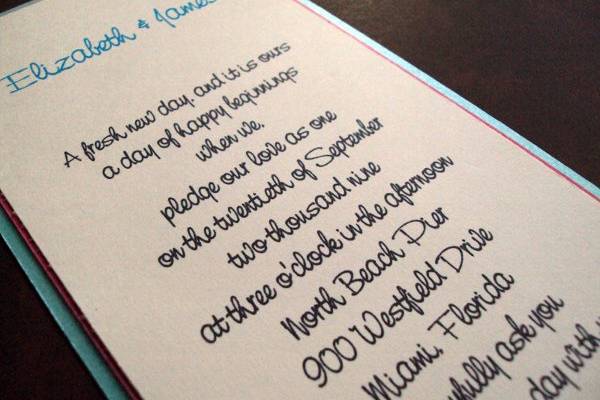 Elizabeth & James
A fresh new day, and it is ours
a day of happy beginnings
when we,
pledge our love as one
on the twentieth of September
two thousand nine
at three o'clock in the afternoon
North Beach Pier
900 Westfield Drive
Miami, Florida
ask you
day with